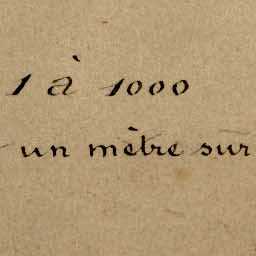 1 à 1000
un mètre sur